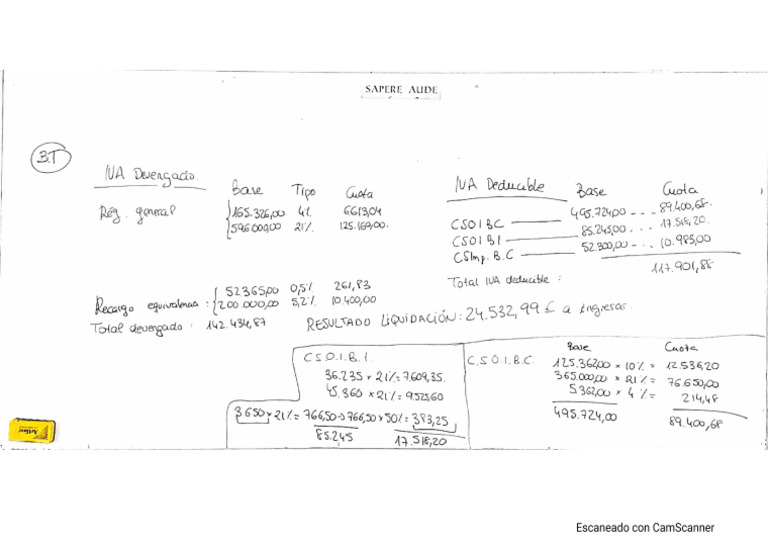 SAPERE AUDE
3.T
IVA Devengado.
Base Tipo Cuota
Rég. general
165.326,00 4% 6613,04
596000,00 21% 125.160,00
Recargo equivalencia:
52365,00 0,5% 261,83
200.000,00 5,2% 10.400,00
Total devengado: 142.434,87
IVA Deducible
Base Cuota
CSOIBC 495.724,00 --- 89.400,68
CSOIBI 85.245,00 ... 17.518,20
CSImp. B.C 52.300,00 --- 10.983,00
117.901,88
Total IVA deducible:
RESULTADO LIQUIDACIÓN: 24.532,99 € a ingresar.
C.S.O.I.B.I.
36.235 x 21% = 7.609,35.
45.360 x 21% = 9.525,60
3650 x 21% = 766,50 → 766,50 x 50% = 383,25
85.245 17.518,20
C.S.O.I.B.C.
Base Cuota
125.362,00 x 10% = 12.536,20
365.000,00 x 21% = 76.650,00
5.362,00 x 4% = 214,48
495.724,00 89.400,68
Escaneado con CamScanner